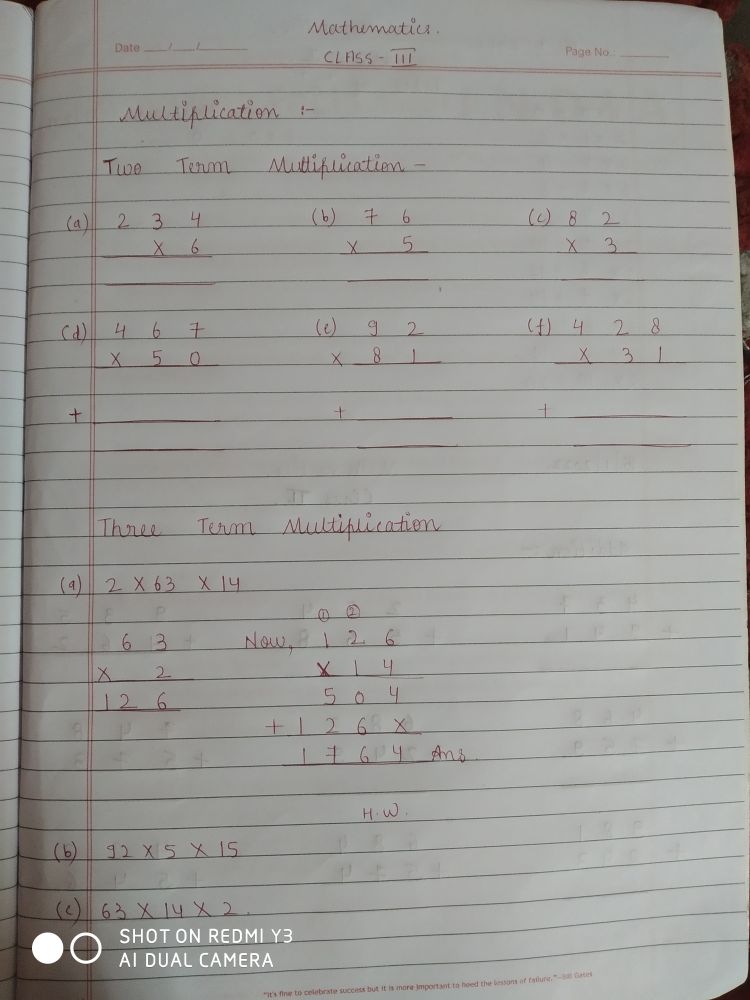 Mathematics.
Date ___/___/______ CLASS - III Page No.: ______
Multiplication :-
Two Term Multiplication -
(a) 2 3 4 (b) 7 6 (c) 8 2
x 6 x 5 x 3
(d) 4 6 7 (e) 9 2 (f) 4 2 8
x 5 0 x 8 1 x 3 1
+ + +
Three Term Multiplication
(a) 2 x 63 x 14
① ②
6 3 Now, 1 2 6
x 2 x 1 4
1 2 6 5 0 4
+ 1 2 6 x
1 7 6 4 Ans.
H.W.
(b) 92 x 5 x 15
(c) 63 x 14 x 2.
SHOT ON REDMI Y3
AI DUAL CAMERA
"It's fine to celebrate success but it is more important to heed the lessons of failure."–Bill Gates